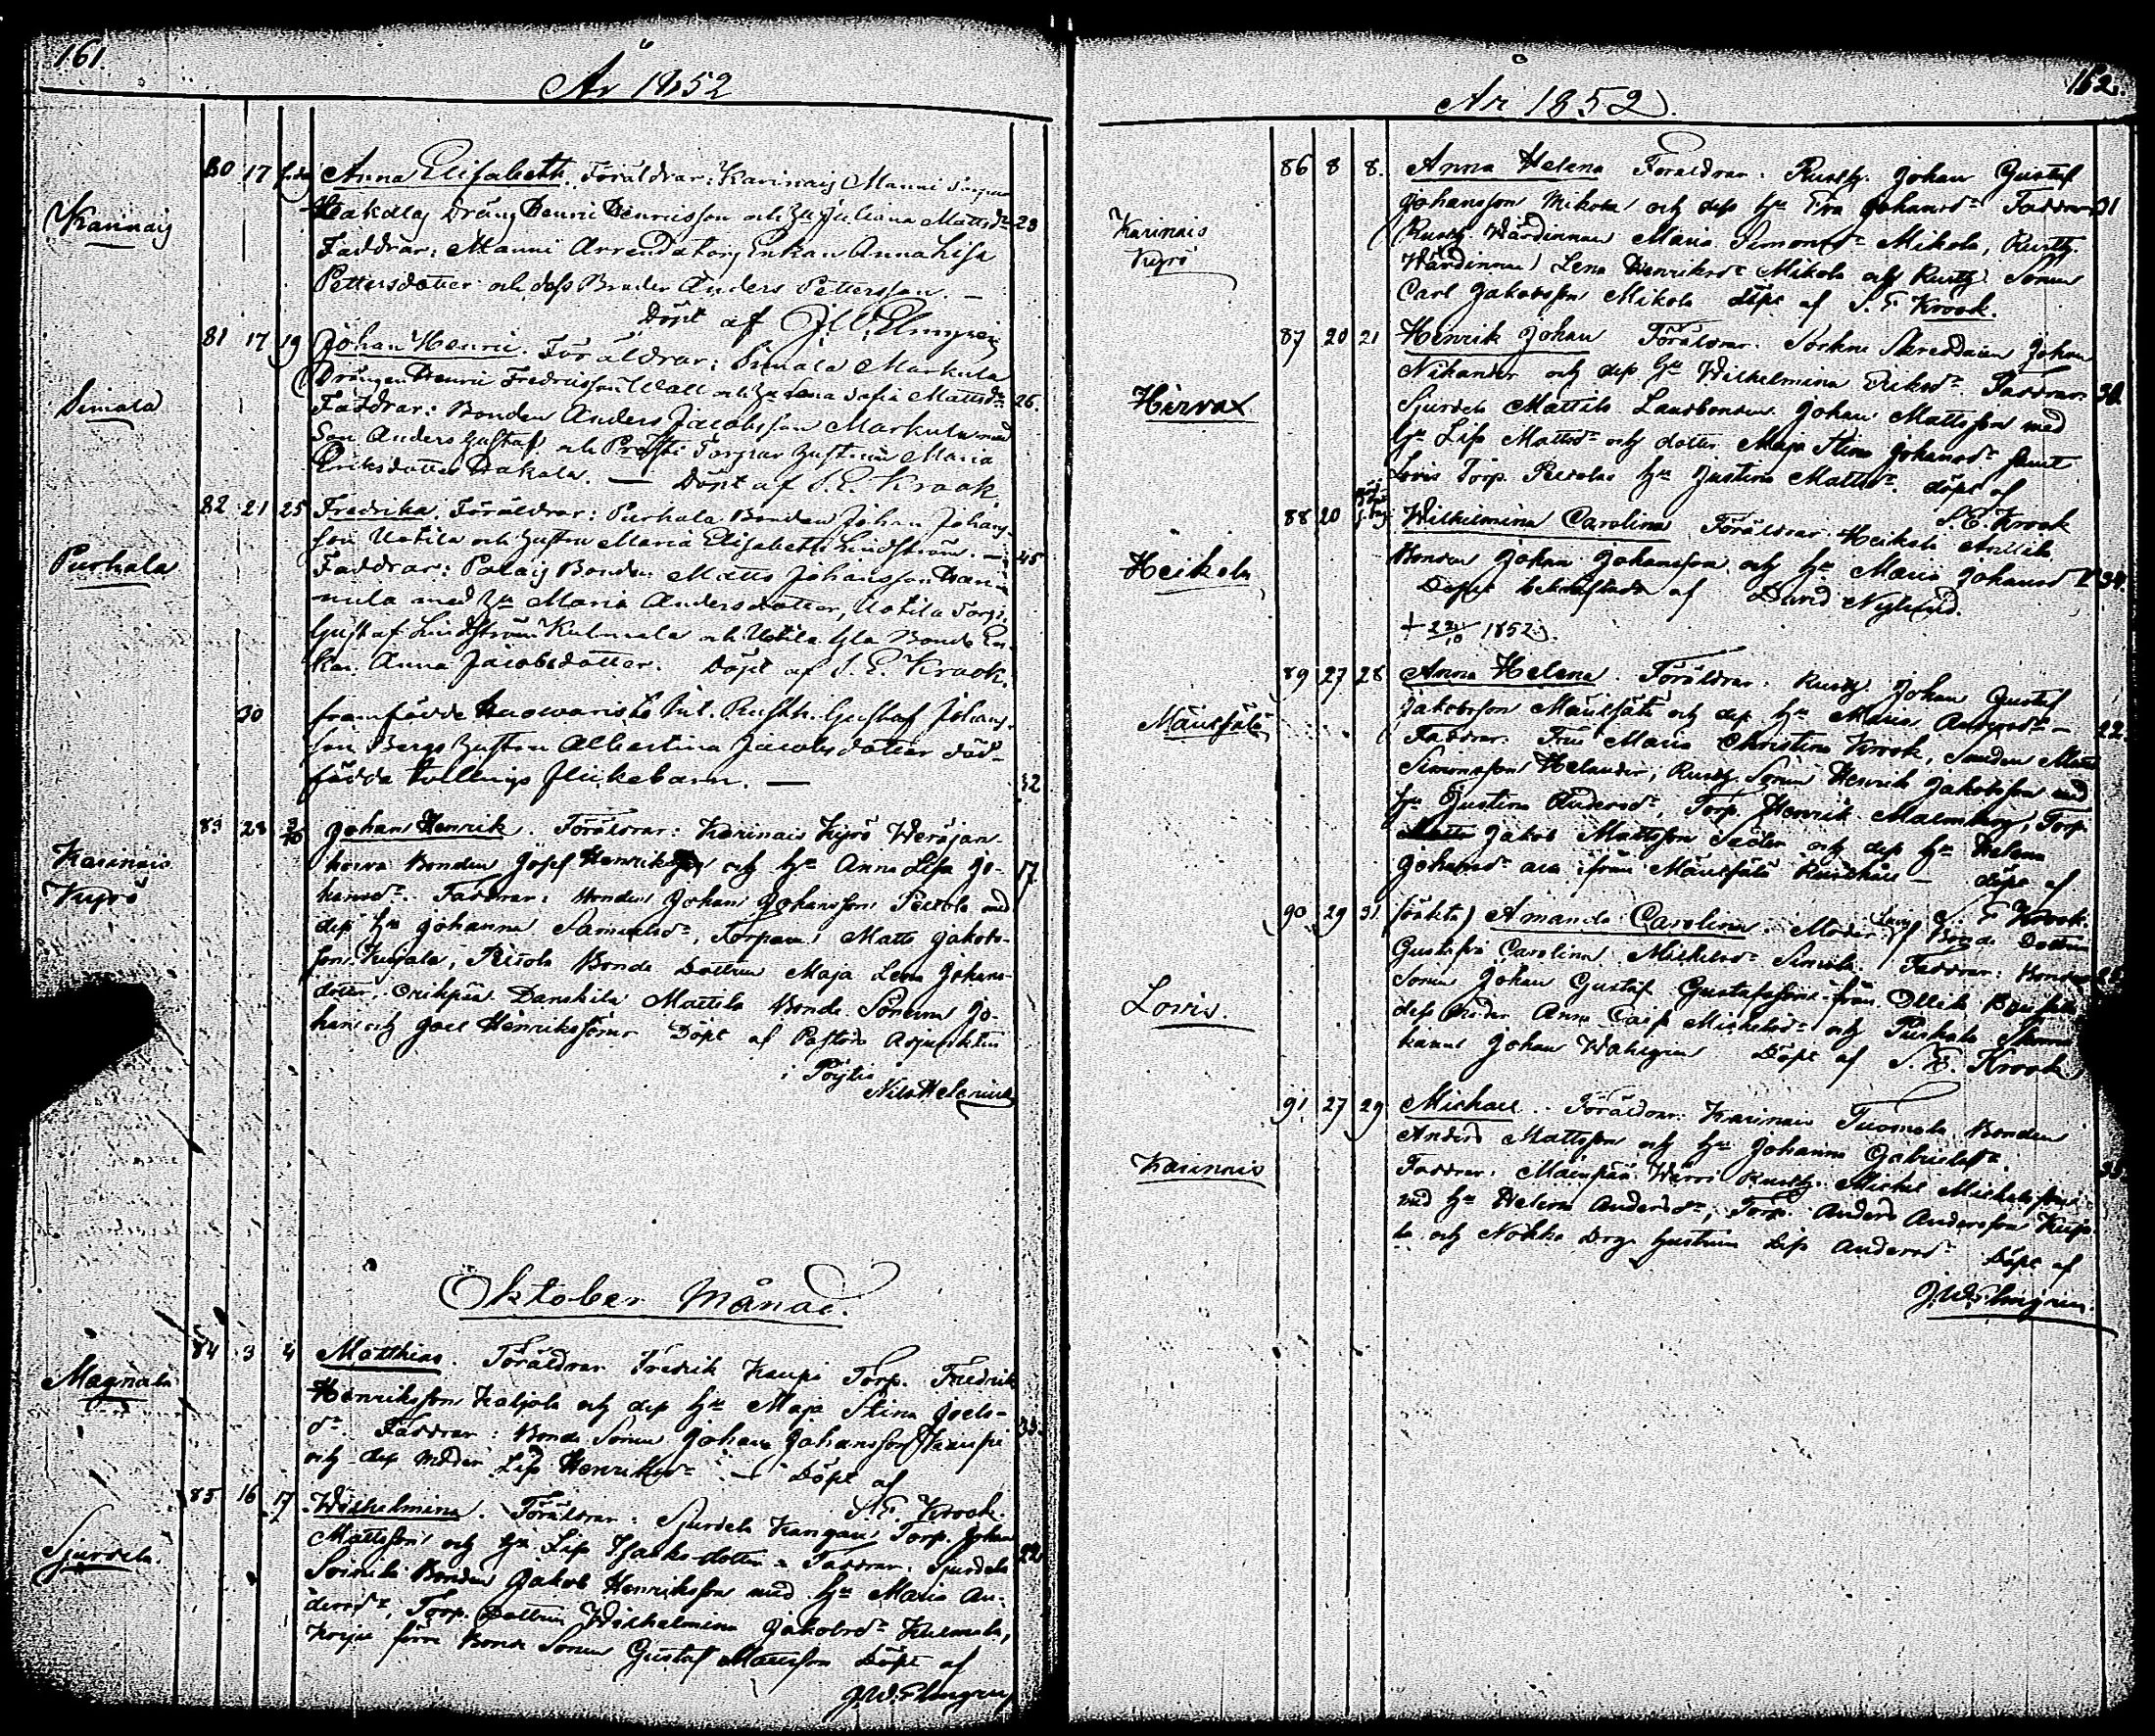 161.
År 1852
Karinais
80 17 Anna Elisabeth. Föräldrar: Karinais Manni
Hakala Dräng Henric Henricsson och hu Juliana Mattsdr 23
Faddrar: Manni Arrendators Enkan Anna Lisa
Pettersdotter och dess Broder Anders Pettersson. —
Döpt af J. W. Elmgren
Simala
81 17 19 Johan Henric. Föräldrar: Simala Markula
Drängen Henric Fredricsson Wall och hu Lena Sofia Mattsdr 26.
Faddrar: Bonden Anders Jacobsson Markula med
Son Anders Gustaf och Torpar hustrun Maria
Eriksdotter Hakala. — Döpt af S. E. Krook
Purhala
82 21 25 Fredrika. Föräldrar: Purhala Bonden Johan Johans-
son Uotila och hustru Maria Elisabeth Lindström. — 45
Faddrar: Bonden Matts Johansson Han-
nula med hu Maria Andersdotter, Uotila Torp.
Gustaf Lindström Kulmala och Uotila Gla Bonde En-
kan Anna Jacobsdotter. Döpt af S. E. Krook.
30 framfödde Rusth. Gustaf Johans-
son Bergs hustru Albertina Jacobsdotter död-
födda tvillings flickebarn. — 32
Karinais
Kyrö
83 28 3/10 Johan Henrik. Föräldrar: Karinais Kyrö
Bonden Josef Henriksson och hu Anna Lisa Jo- 17
hansdr. Faddrar: Bonden Johan Johansson med
dess hu Johanna Samuelsdr, Torparn Matts Jakobs-
son Kujala, Bonde Dottren Maja Lena Johans-
dotter, Orihpää Danskila Mattila Bonde Sönerne Jo-
han och Joel Henrikssöner Döpt af Pastors Adjunkten
i Pöytis
Nils Helenius
Oktober Månad.
Magnula
84 3 4 Matthias. Föräldrar Fredrik Kaupi Torp. Fredrik
Henriksson Katjola och dess hu Maja Stina Joels-
dr. Faddrar: Bonde Sonen Johan Johansson Kaupi 33
och dess moder Lisa Henriksdr — Döpt af
S. E. Krook.
Sjurdela.
85 16 17 Wilhelmina. Föräldrar: Sjurdela Kangas Torp. Johan
Mattsson och hu Lisa Isaksdotter. Faddrar: Sjurdela 22
Bonden Jakob Henriksson med hu Maria An-
dersdr, Torp. Dottren Wilhelmina Jakobsdr Kulmala,
Bonde Sonen Gustaf Mattsson Döpt af
J. W. Elmgren
162.
År 1852.
Karinais
Kyrö
86 8 8. Anna Helena Föräldrar: Rusth. Johan Gustaf
Johansson Mikola och dess hu Eva Johansdr Faddrar 31
Rusth. Wärdinnan Maria Simonsdr Mikola, Rusth.
Wärdinnan Lena Henriksdr Mikola och Rusth. Sonen
Carl Jakobsson Mikola döpt af S. E. Krook.
Hirvax
87 20 21 Henrik Johan Föräldrar: Sockne Skräddaren Johan
Nikander och dess hu Wilhelmina Eriksdr Faddrar 30.
Sjurdela Mattila Landbonden Johan Mattsson med
hu Lisa Mattsdr och dotter Maja Stina Johansdr samt
Lovis Torp. hu Justina Mattsdr. döpt af
S. E. Krook
Heikola
88 20 Wilhelmina Carolina Föräldrar: Heikola Anttila
Bonden Johan Johansson och hu Maria Johansdr 34.
Dopet bekräftadt af David Nylund.
+ 22/10 1852.
Mäntsälä
89 27 28 Anna Helena. Föräldrar: Rusth. Johan Gustaf
Jakobsson Mäntsälä och dess hu Maria Andersdr — 22.
Faddrar: Fru Maria Christina Krook, Matts
Simonsson Helander, Rusth. Sonen Henrik Jakobsson med
hu Justina Andersdr, Torp. Henrik Malmberg, Torp.
Jakob Mattsson och dess hu Helena
Johansdr alla ifrån Mäntsälä Rusthåll — döpt af
S. E. Krook.
Lovis.
90 29 31. (oäkta) Amanda Carolina. Moder: Bonde Dottren
Gustafva Carolina Michelsdr Simola. Faddrar: Bonde
Sonen Johan Gustaf Gustafsson från Ollila
dess Moder Anna Caisa Michelsdr och Purhala
Johan Wahlgren Döpt af S. E. Krook
Karinais
91 27 29 Michael. Föräldrar: Karinais Tuomola Bonden
Anders Mattsson och hu Johanna Gabrielsdr.
Faddrar: Mäenpää Rusth. Michel Michelsson
med hu Helena Andersdr, Torp. Anders Andersson
och Nokka Drg. hustrun Lisa Andersdr Döpt af
J. W. Elmgren.